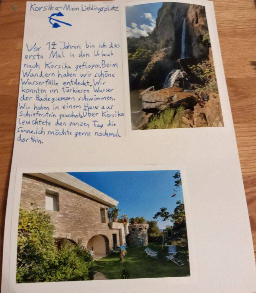 Korsika-Mein Lieblingsplatz
Vor 12 Jahren bin ich das
erste Mal in den Urlaub
nach Korsika geflogen. Beim
Wandern haben wir schöne
Wasserfälle entdeckt. Wir
konnten im türkisen Wasser
der Badegumpen schwimmen.
Wir haben in einem Haus aus
Schieferstein gewohnt. Über Korsika
leuchtete den ganzen Tag die
Sonne. Ich möchte gerne nochmal
dorthin.